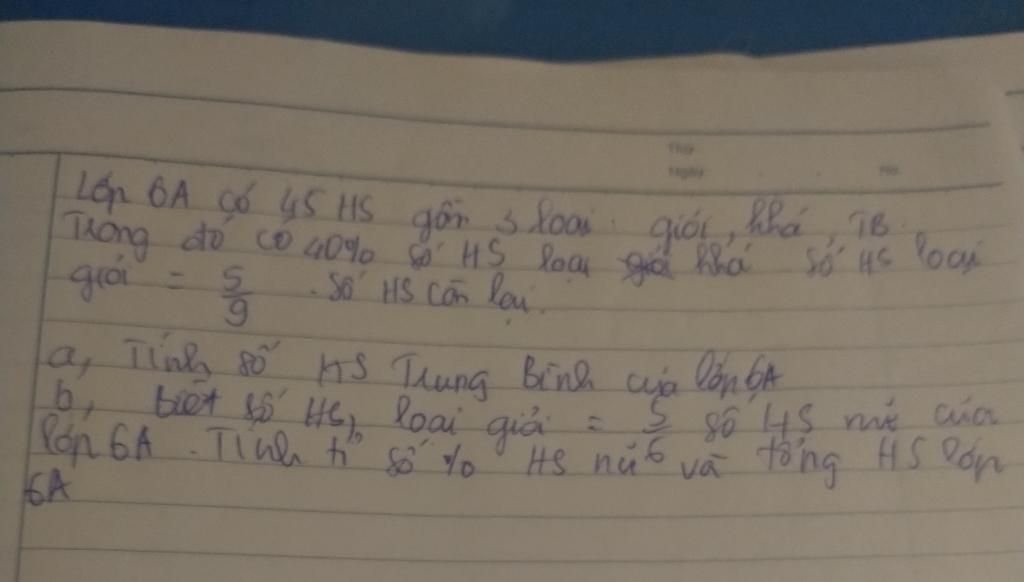 Thứ
Ngày No
Lớp 6A có 45 HS gồm 3 loại: giỏi, khá, TB.
Trong đó có 40% số HS loại khá số HS loại
giỏi = 5/9 . số HS còn lại.
a, Tính số HS Trung Bình của lớp 6A
b, biết số HS, loại giỏi = 5/6 số HS nữ của
lớp 6A . Tính tỉ số % HS nữ và tổng HS lớp
6A